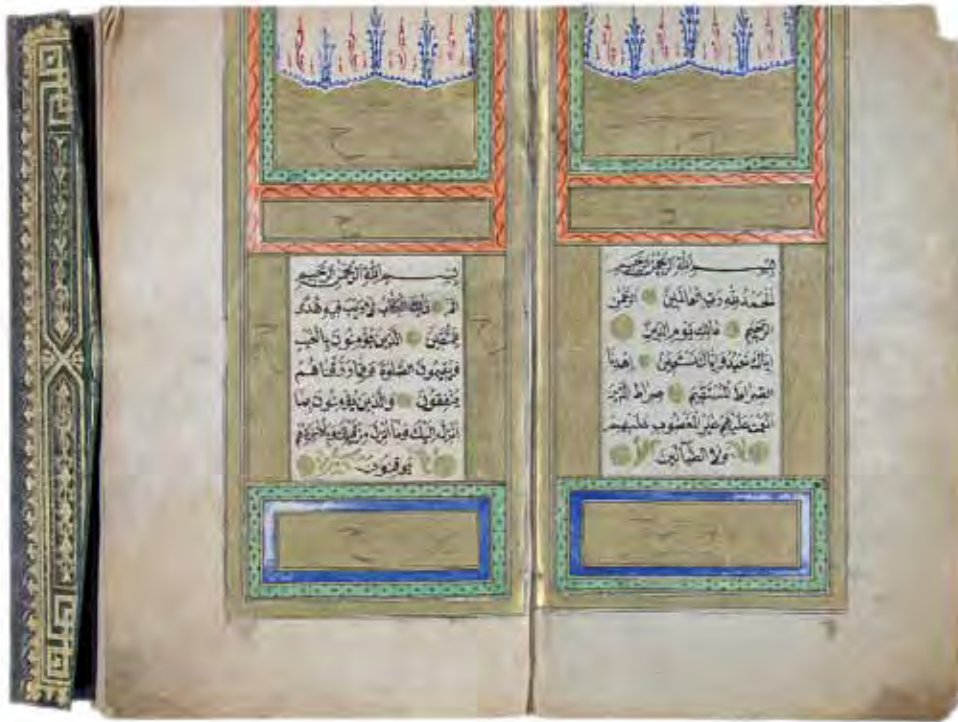 بسم الله الرحمن الرحيم
الحمد لله رب العالمين الرحمن
الرحيم مالك يوم الدين
اياك نعبد واياك نستعين اهدنا
الصراط المستقيم صراط الذين
انعمت عليهم غير المغضوب عليهم
ولا الضآلين
بسم الله الرحمن الرحيم
الم ذلك الكتاب لا ريب فيه هدى
للمتقين الذين يؤمنون بالغيب
ويقيمون الصلوة ومما رزقناهم
ينفقون والذين يؤمنون بما
انزل اليك وما انزل من قبلك وبالاخرة هم
يوقنون